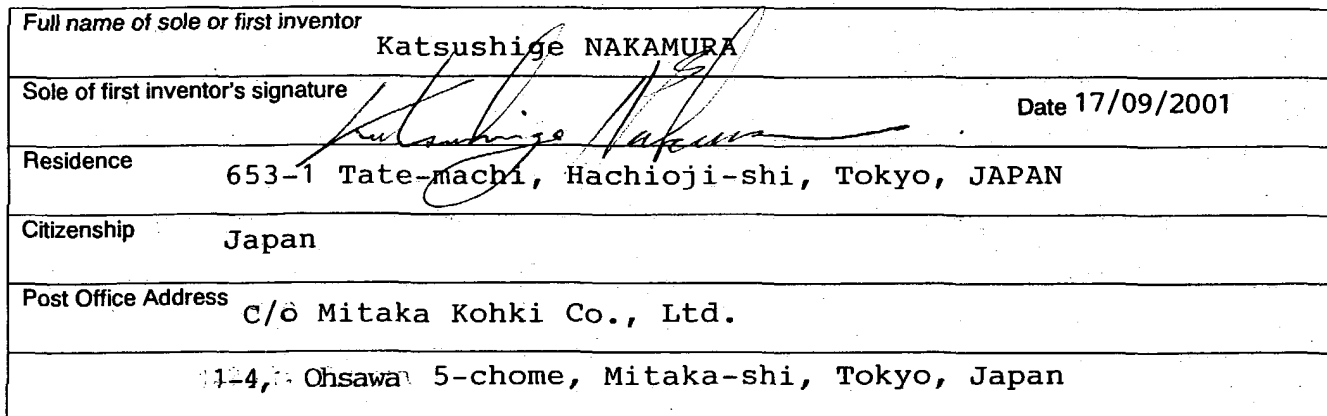 Full name of sole or first inventor
Katsushige NAKAMURA
Sole of first inventor's signature Date 17/09/2001
Katsushige Nakamura
Residence 653-1 Tate-machi, Hachioji-shi, Tokyo, JAPAN
Citizenship Japan
Post Office Address C/o Mitaka Kohki Co., Ltd.
1-4, Ohsawa 5-chome, Mitaka-shi, Tokyo, Japan